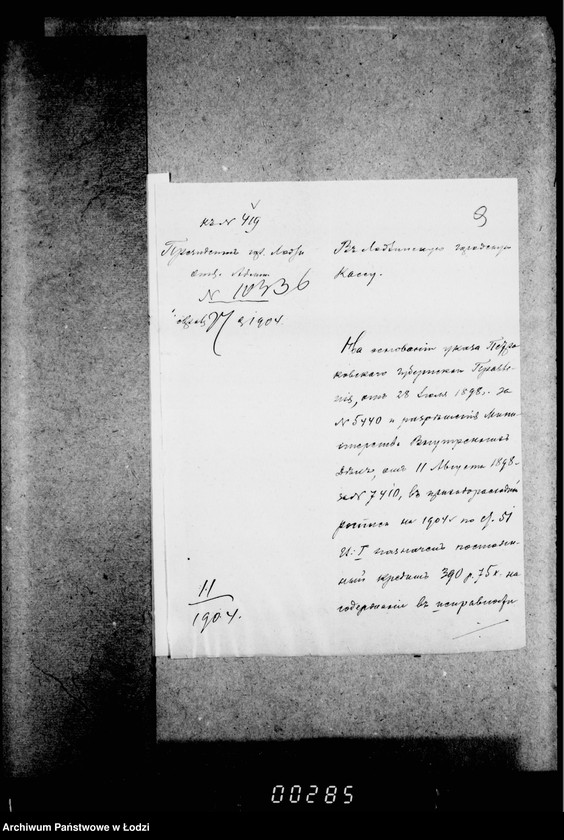 къ № 419
9
Президентъ гор. Лодзи
отд. Админ.
№ 10336
1904.
Въ Лодзинскую городскую
Кассу.
На основаніи указа Петро-
ковскаго Губернскаго Правле-
нія, отъ 28 Іюля 1898 г. за
№ 5440 и разрѣшенія Мини-
стерства Внутреннихъ
Дѣлъ, отъ 11 Августа 1898 г.
за № 7410, въ приходорасходной
росписи на 1904 г по ст. 51
Ч. I назначенъ постоян-
ный кредитъ 390 р. 75 к. на
содержаніе въ исправности
11
1904.
00285
Archiwum Państwowe w Łodzi